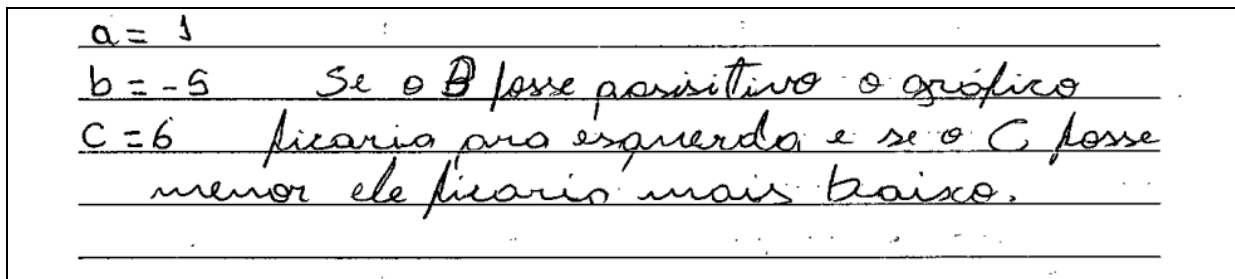 a = 1
b = -5 Se o B fosse posisitivo o gráfico
C = 6 ficaria pra esquerda e se o C fosse
menor ele ficaria mais baixo.